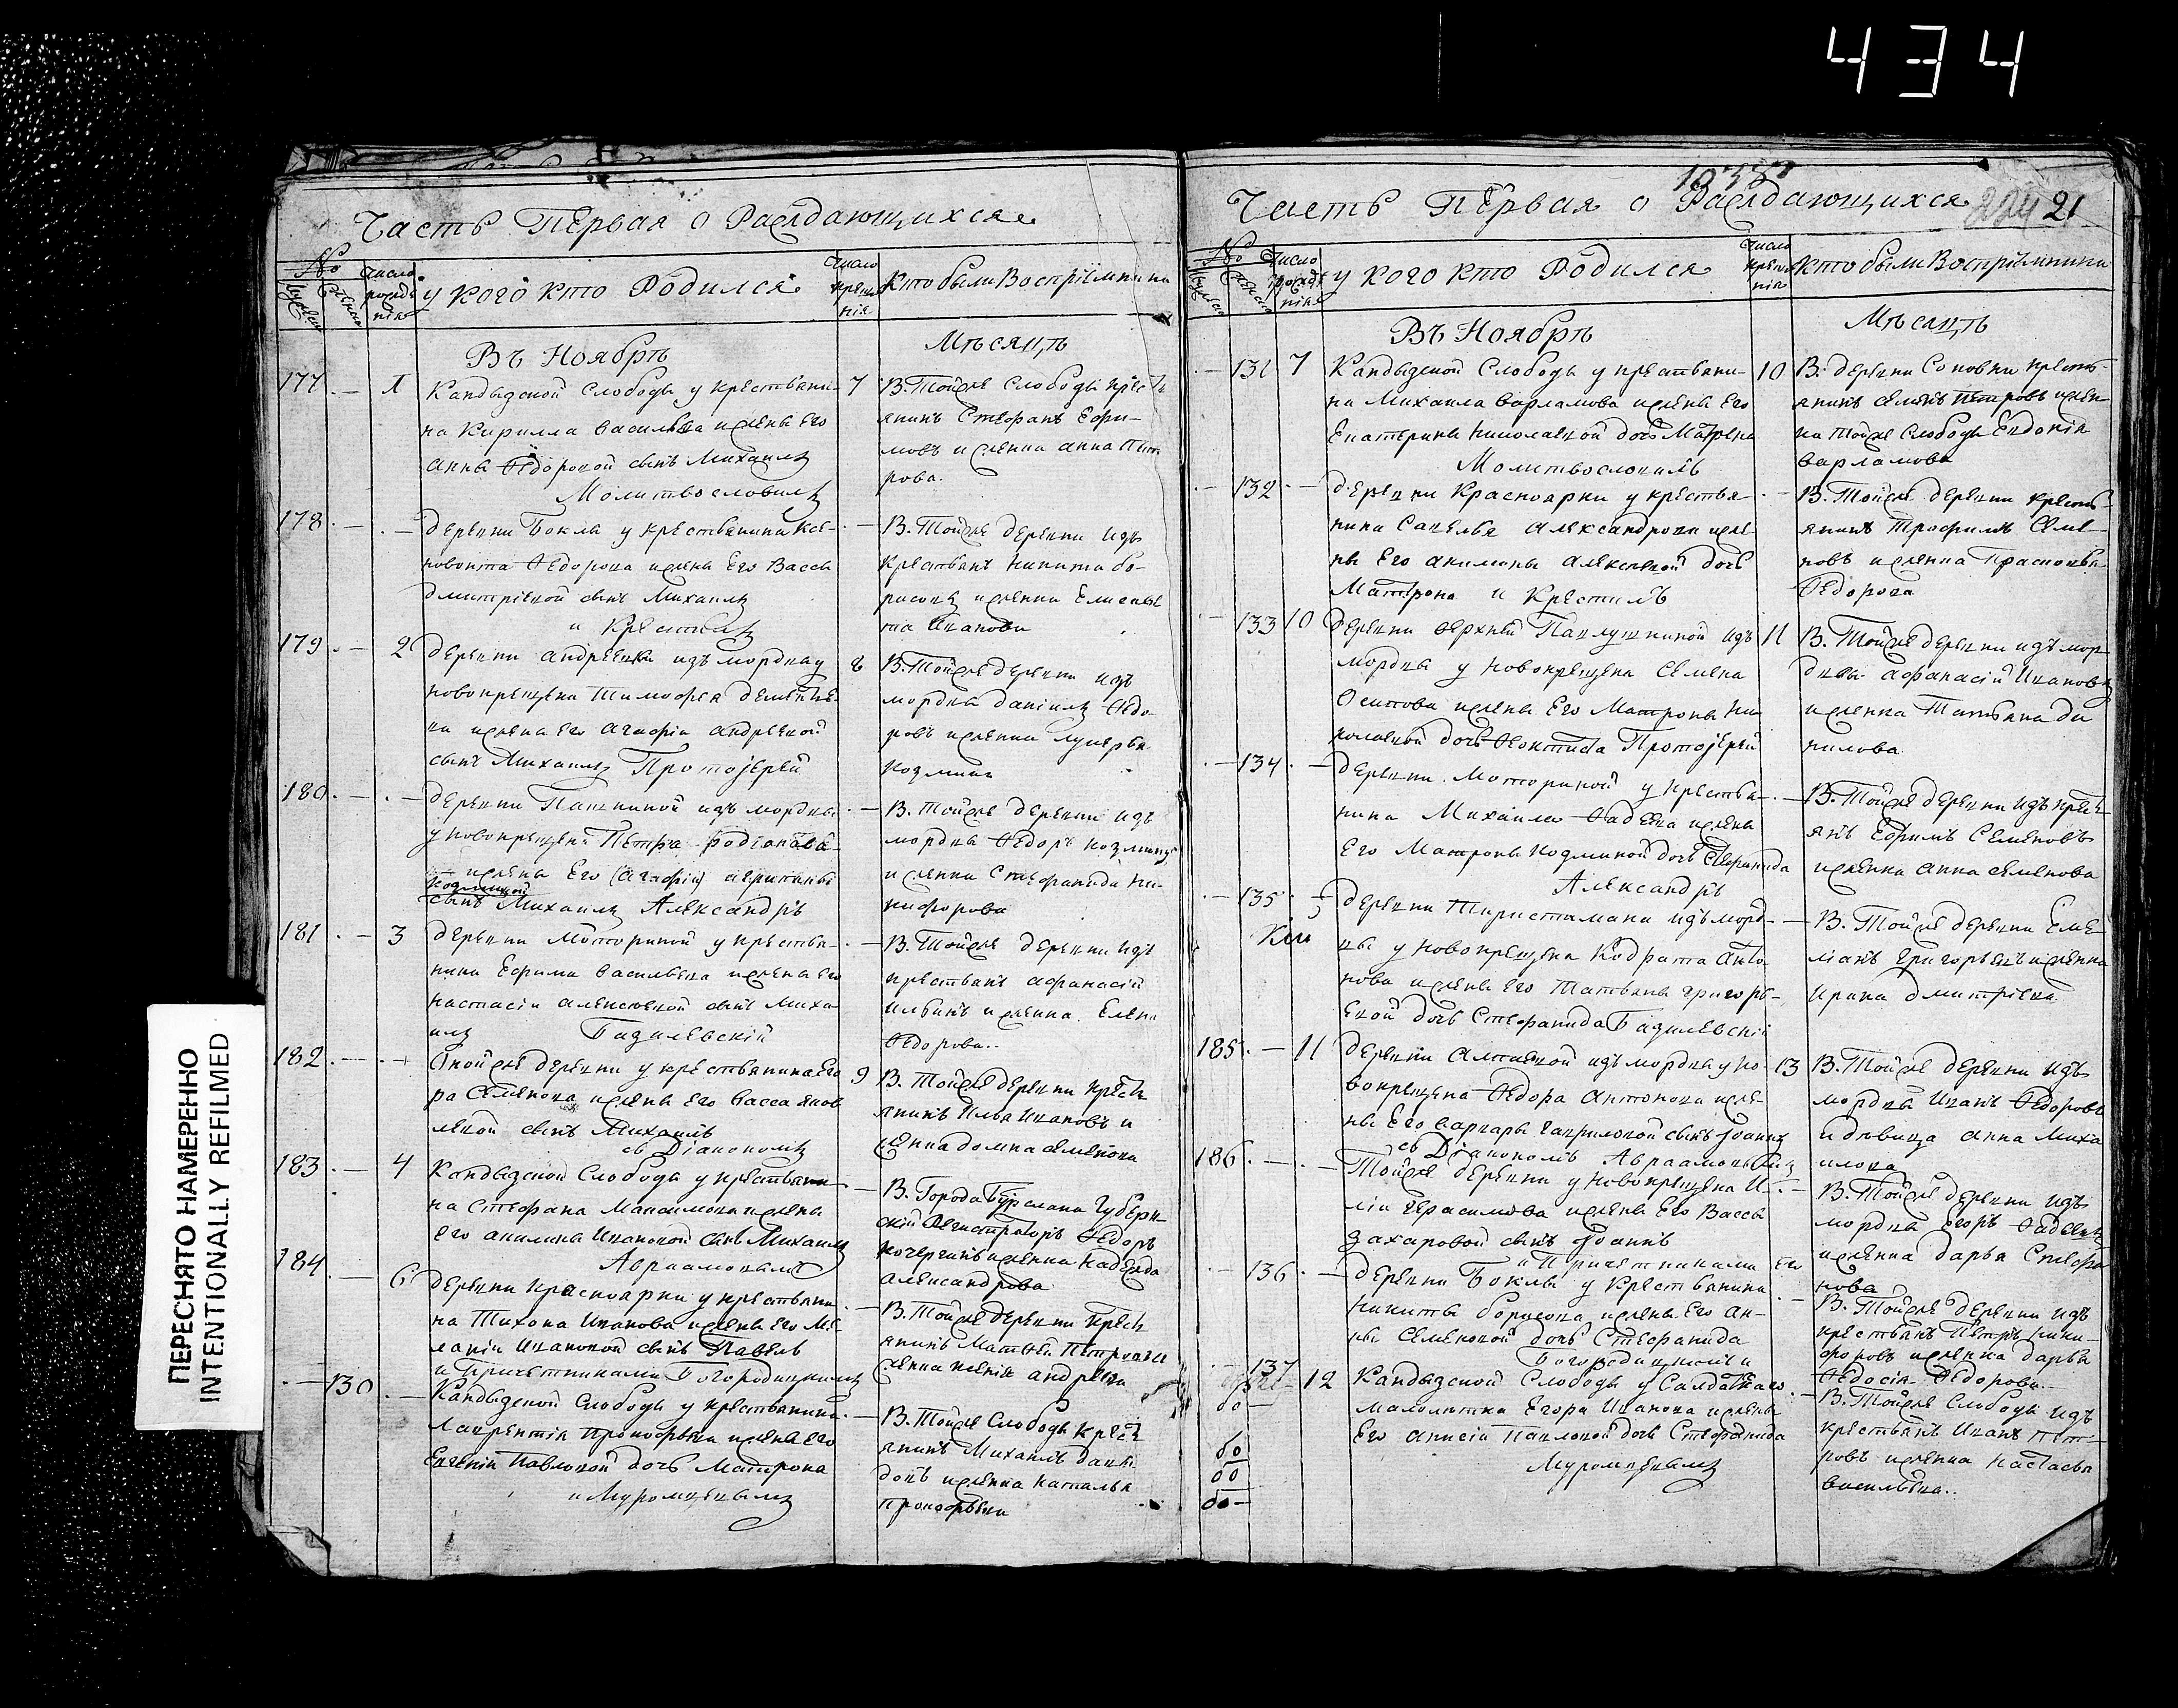 434
ПЕРЕСНЯТО НАМЕРЕННО
INTENTIONALLY REFILMED
Часть Первая о Раждающихся
№
число рожде нія
у кого кто Родился
число креще нія
кто были Воспріемники
Въ Ноябрѣ
Мѣсяцѣ
177 — 1 Кандызской Слободы у крестьяни-
на Кирилла Васильева и жены Его
Анны Ѳедоровой сынъ Михаилъ
Молитвословилъ
7 В. Тойже Слободы крест
янинъ Стефанъ Ефи-
мовъ и женка Анна Пет
рова.
178 — — деревни Боклы у крестьянина Ксе-
нофонта Ѳедорова и жены Его Вассы
Дмитріевой сынъ Михаилъ
и Крестилъ
— В. Тойже деревни изъ
крестьянъ Никита Бо-
рисовъ и женка Елисаве
та Иванова
179 — 2 деревни Андреевки изъ мордвы у
новокрещена Тимофея Дементье-
ва и жены его Агафіи Андреевой
сынъ Михаилъ Протоіерей
8 В. Тойже деревни изъ
мордвы Даніилъ Ѳедо-
ровъ и женка Лукерья
Козмина
180 — — деревни Пашкиной изъ мордвы
у новокрещена Петра Родіонова
и жены Его (Агафіи)
Козминой
сынъ Михаилъ Александръ
— В. Тойже деревни изъ
мордвы Ѳедоръ Козминъ
и женка Стефанида Ни-
кифорова
181 — 3 деревни Моториной у крестья-
нина Ефима Васильева и жены его
Настасіи Алексеевой сынъ Миха
илъ Базилевскій
— В. Тойже деревни изъ
крестьянъ Афанасій
Ильинъ и женка Елена
Ѳедорова..
182 — — Онойже деревни у крестьянина Его
ра Семенова и жены Его Васса Яков
левой сынъ Михаилъ
съ Діакономъ
9 В. Тойже деревни крест
янинъ Илья Ивановъ и
женка Домна Семенова
183 — 4 Кандызской Слободы у крестьяни-
на Стефана Максимова и жены
Его Акилины Ивановой сынъ Михаилъ
Авраамовымъ
— В. Города Бузулана Губерн-
скій Регистраторъ Ѳедоръ
Кочергинъ и женка Надежда
Александрова
184 — 6 деревни Красноярки у крестьяни
на Тихона Иванова и жены Его Ме
ланіи Ивановой сынъ Павелъ
и Причетниками Богородицкимъ
— В. Тойже деревни крест
янинъ Матвей Петровъ и
женка Ксенія Андреева
— 130 — Кандызской Слободы у крестьянина
Лаврентія Прокофьева и жены его
Евгеніи Павловой дочь Матрона
и Муромцевымъ
— В. Тойже Слободы крест
янинъ Михаилъ Давы
довъ и женка Наталья
Прокофьева
224 21
Часть Первая о Раждающихся
№
число рожде нія
у кого кто Родился
число креще нія
кто были Воспріемники
Въ Ноябрѣ
Мѣсяцѣ
— 131 7 Кандызской Слободы у крестьяни-
на Михаила Варламова и жены Его
Екатерины Николаевой дочь Матрена
Молитвословилъ
10 В. деревни Соповки кресть-
янинъ Семенъ Петровъ и жен-
ка Тойже Слободы Евдокія
Варламова
— 132 — деревни Красноярки у крестья-
нина Савелья Александрова и же-
ны Его Акилины Алексеевой дочь
Матрона и Крестилъ
— В. Тойже деревни кресть-
янинъ Трофимъ Семе-
новъ и женка Прасковья
Ѳедорова
— 133 10 деревни Верхней Павлушкиной изъ
мордвы у новокрещена Семена
Осипова и жены Его Матроны Ни
колаевой дочь Ѳеоктиста Протоіерей
11 В. Тойже деревни изъ мор
двы Афанасій Ивановъ
и женка Татьяна Да
нилова
— 134 — деревни Моториной у крестья-
нина Михаила Ѳадеева и жены
Его Матроны Козминой дочь Стефанида
Александръ
— В. Тойже деревни изъ крест
янъ Ефимъ Семеновъ
и женка Анна Семенова
— 135 — деревни Туристамака изъ морд-
вы у новокрещена Кодрата Анто
нова и жены Его Татьяны Григорь-
евой дочь Стефанида Базилевскій
— В. Тойже деревни Еме-
ліанъ Григорьевъ и женка
Ирина Дмитріева
185 — 11 деревни Алпаевой изъ мордвы у но-
вокрещена Ѳедора Антонова и же-
ны Его Варвары Гавриловой сынъ Іоаннъ
съ Діакономъ Авраамовымъ
13 В. Тойже деревни изъ
мордвы Иванъ Ѳедоровъ
и дѣвица Анна Миха
илова
186 — — Тойже деревни у новокрещена И-
ліи Герасимова и жены Его Вассы
Захаровой сынъ Іоаннъ
и Причетниками
— В. Тойже деревни изъ
мордвы Егоръ Ѳадеевъ
и женка Дарья Стефа
нова
— 136 — деревни Боклы у Крестьянина
Никиты Борисова и жены Его Ан-
ны Семеновой дочь Стефанида
Богородицкимъ и
— В. Тойже деревни изъ
крестьянъ Петръ Ники-
форовъ и женка Дарья
Ѳедосія Ѳедорова
137 12 Кандызской Слободы у Салдатскаго
малолѣтка Егора Иванова и жены
Его Анисіи Павловой дочь Стефанида
Муромцевымъ
— В. Тойже Слободы изъ
крестьянъ Иванъ Пет-
ровъ и женка Настасья
Васильева.